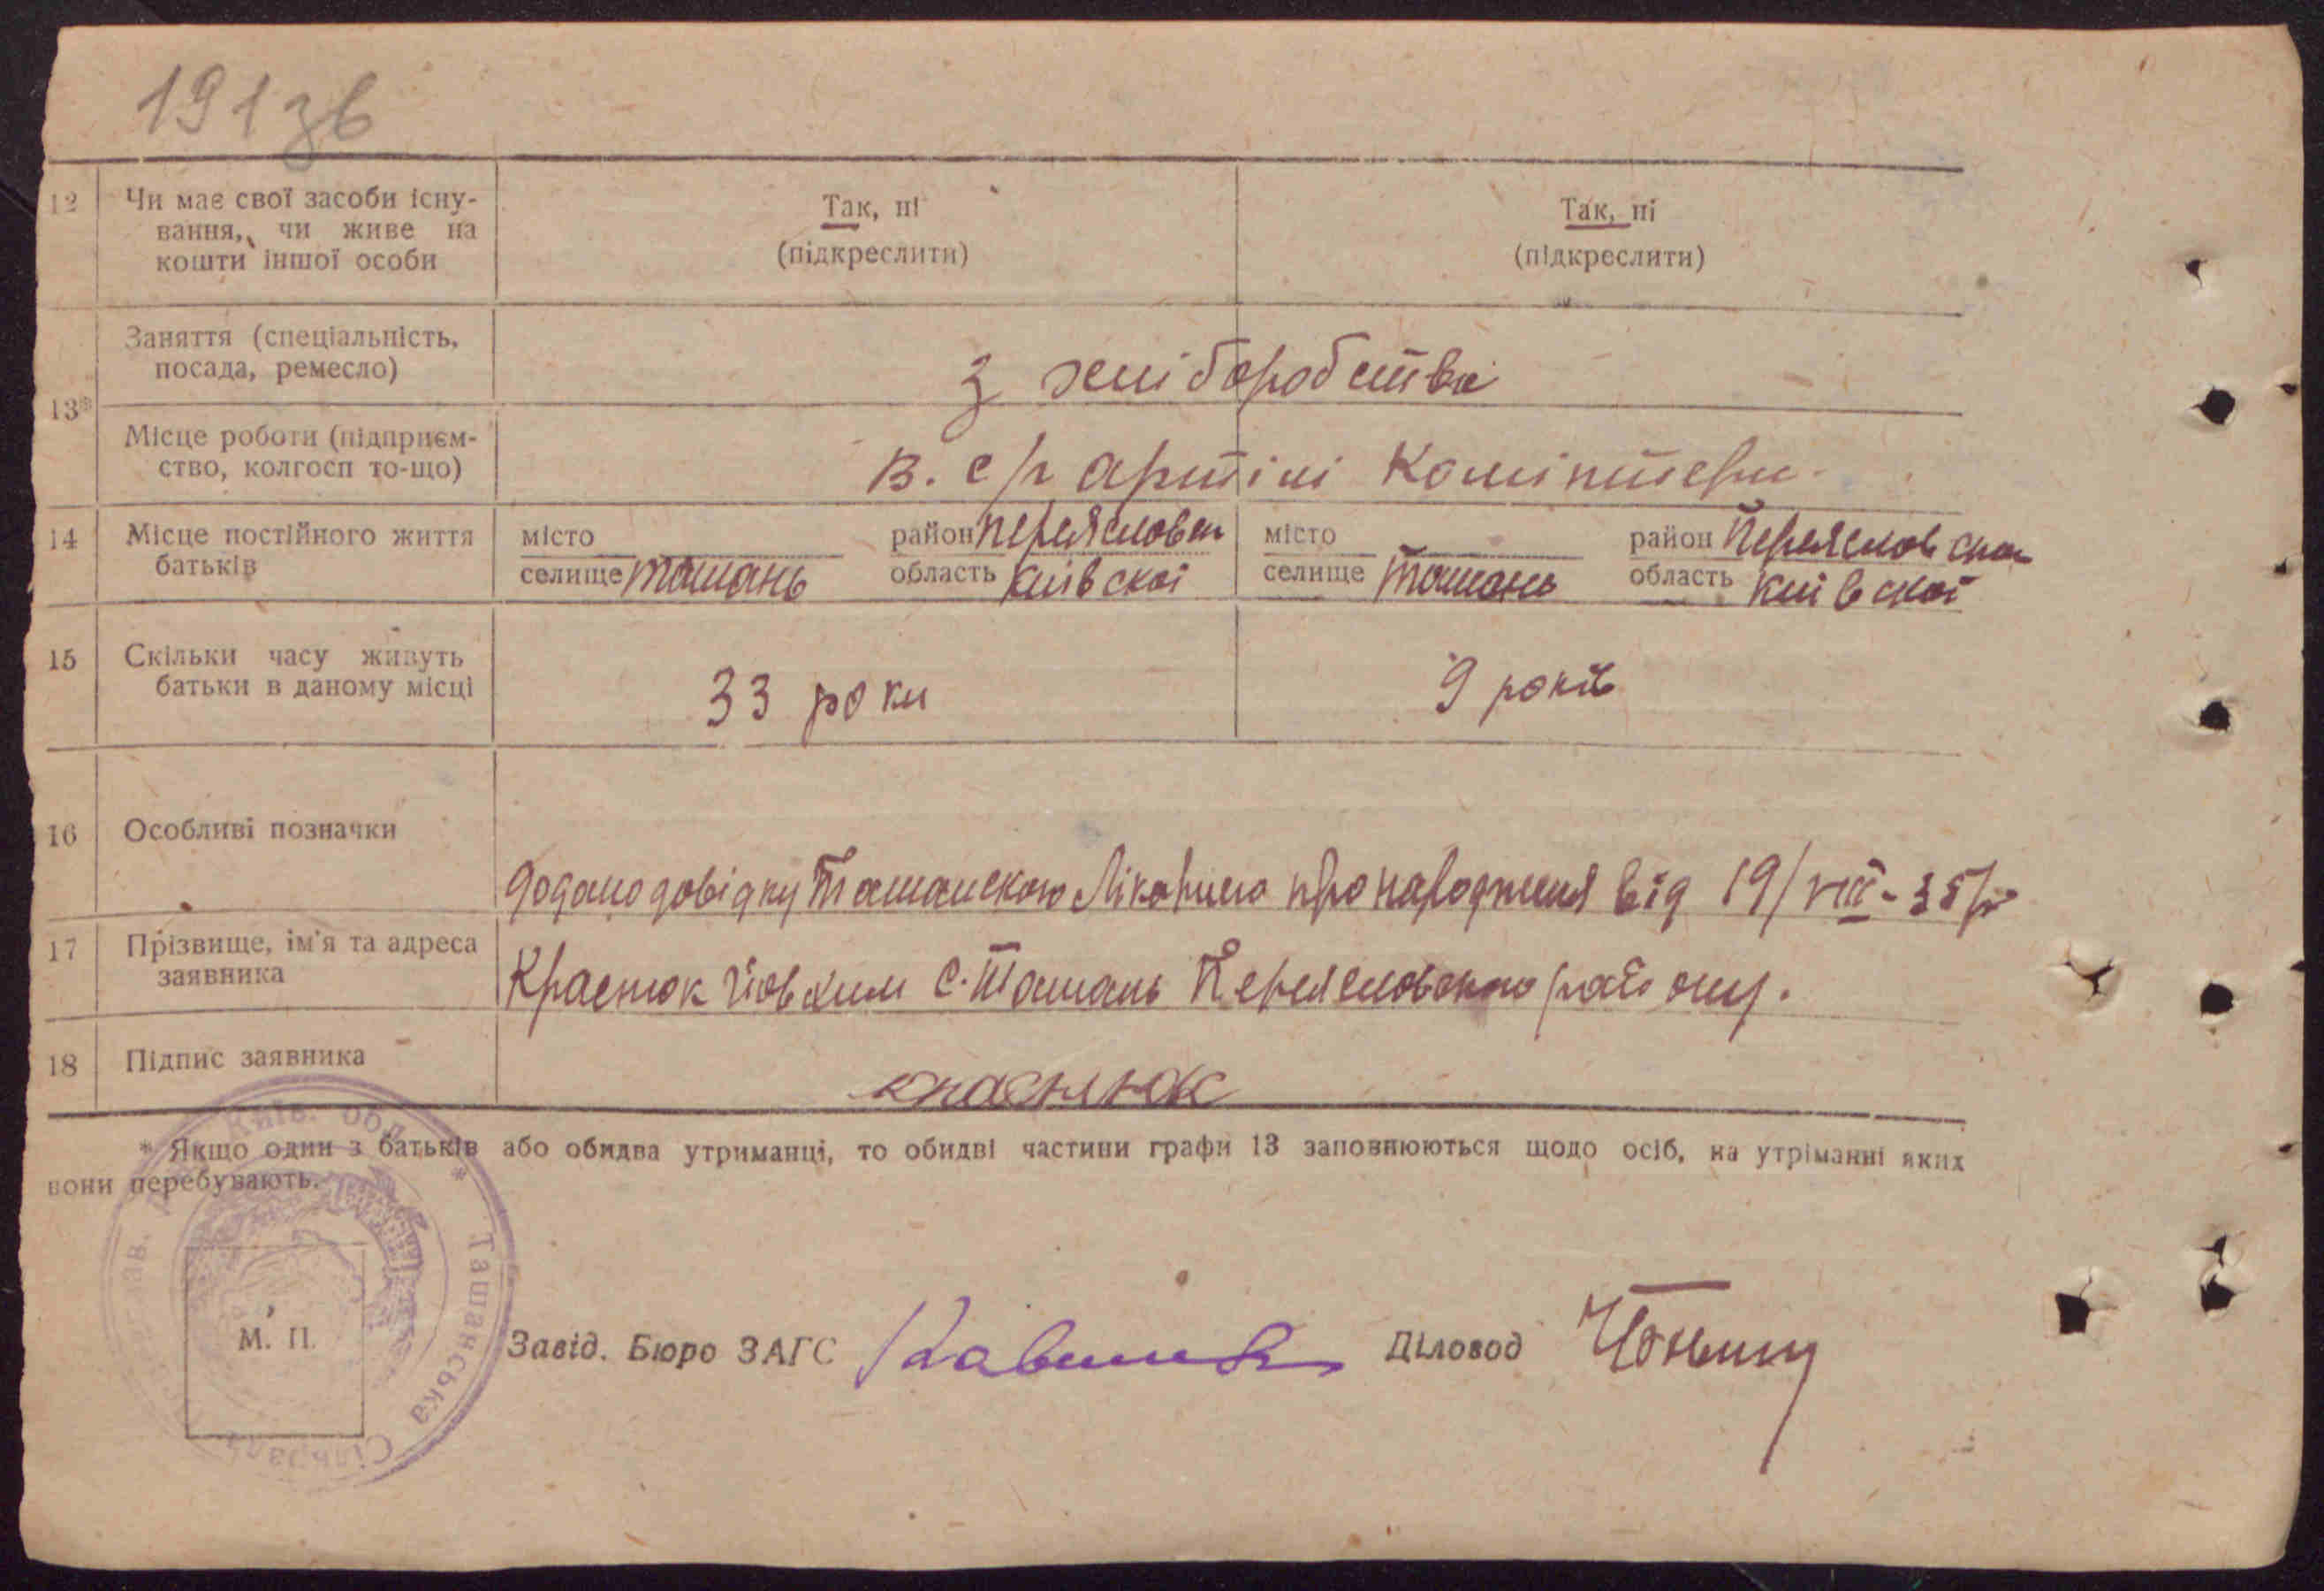 191 зв
12 Чи має свої засоби існу- Так, ні Так, ні
вання, чи живе на (підкреслити) (підкреслити)
кошти іншої особи
13* Заняття (спеціальність, з хліборобства
посада, ремесло)
Місце роботи (підприєм- В. с/г артілі Комінтерн
ство, колгосп то-що)
14 Місце постійного життя місто район Переясловськ місто район Переясловська
батьків селище Ташань область Київської селище Ташань область Київської
15 Скільки часу живуть 33 роки 9 років
батьки в даному місці
16 Особливі позначки
додано довідку Ташанскою Лікарнею про народження від 19/VIII-35р
17 Прізвище, ім'я та адреса Краснюк Йовхим С. Ташань Переясловского району.
заявника
18 Підпис заявника краснюк
* Якщо один з батьків або обидва утриманці, то обидві частини графи 13 заповнюються щодо осіб, на утріманні яких
вони перебувають.
Київ. обл. * Ташанська Сільрада
М. П.
Завід. Бюро ЗАГС Діловод